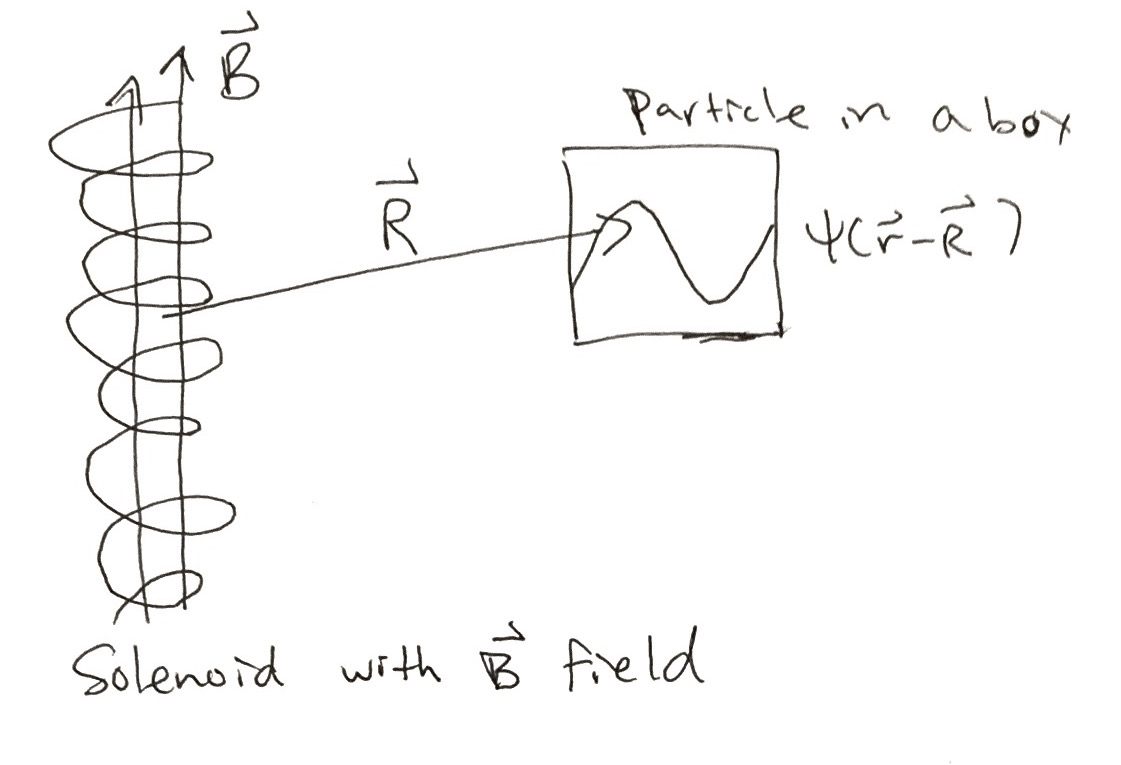 B⃗
Particle in a box
R⃗
ψ(r⃗-R⃗)
Solenoid with B⃗ field